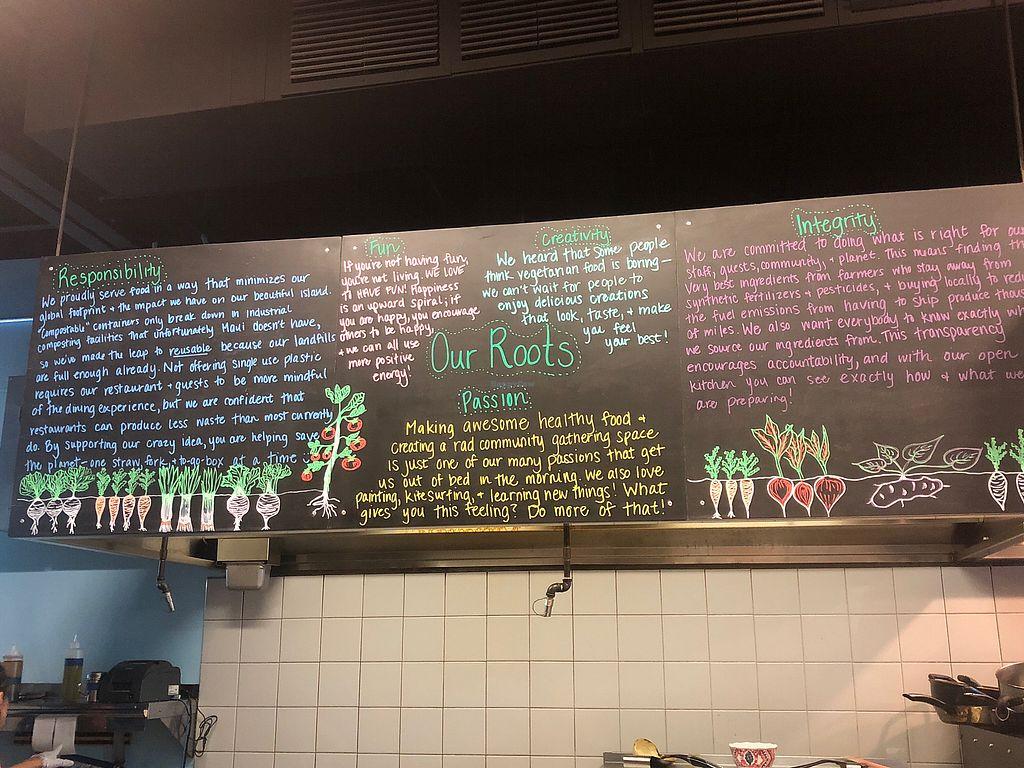 Responsibility
We proudly serve food in a way that minimizes our
global footprint + the impact we have on our beautiful island.
"Compostable" containers only break down in industrial
composting facilities that unfortunately Maui doesn't have,
so we've made the leap to reusable because our landfills
are full enough already. Not offering single use plastic
requires our restaurant + guests to be more mindful
of the dining experience, but we are confident that
restaurants can produce less waste than most currently
do. By supporting our crazy idea, you are helping save
the planet - one straw, fork, + to-go-box at a time :)
Fun
If you're not having fun,
you're not living. WE LOVE
TO HAVE FUN! Happiness
is an upward spiral; if
you are happy, you encourage
others to be happy,
+ we can all use
more positive
energy!
Creativity
We heard that some people
think vegetarian food is boring—
we can't wait for people to
enjoy delicious creations
that look, taste, + make
you feel
your best!
Our Roots
Passion
Making awesome healthy food +
creating a rad community gathering space
is just one of our many passions that get
us out of bed in the morning. We also love
painting, kitesurfing, + learning new things! What
gives you this feeling? Do more of that!
Integrity
We are committed to doing what is right for our
staff, guests, community, + planet. This means finding the
very best ingredients from farmers who stay away from
synthetic fertilizers + pesticides, + buying locally to red
the fuel emissions from having to ship produce thous
of miles. We also want everybody to know exactly wh
we source our ingredients from. This transparency
encourages accountability, and with our open
kitchen you can see exactly how + what we
are preparing!